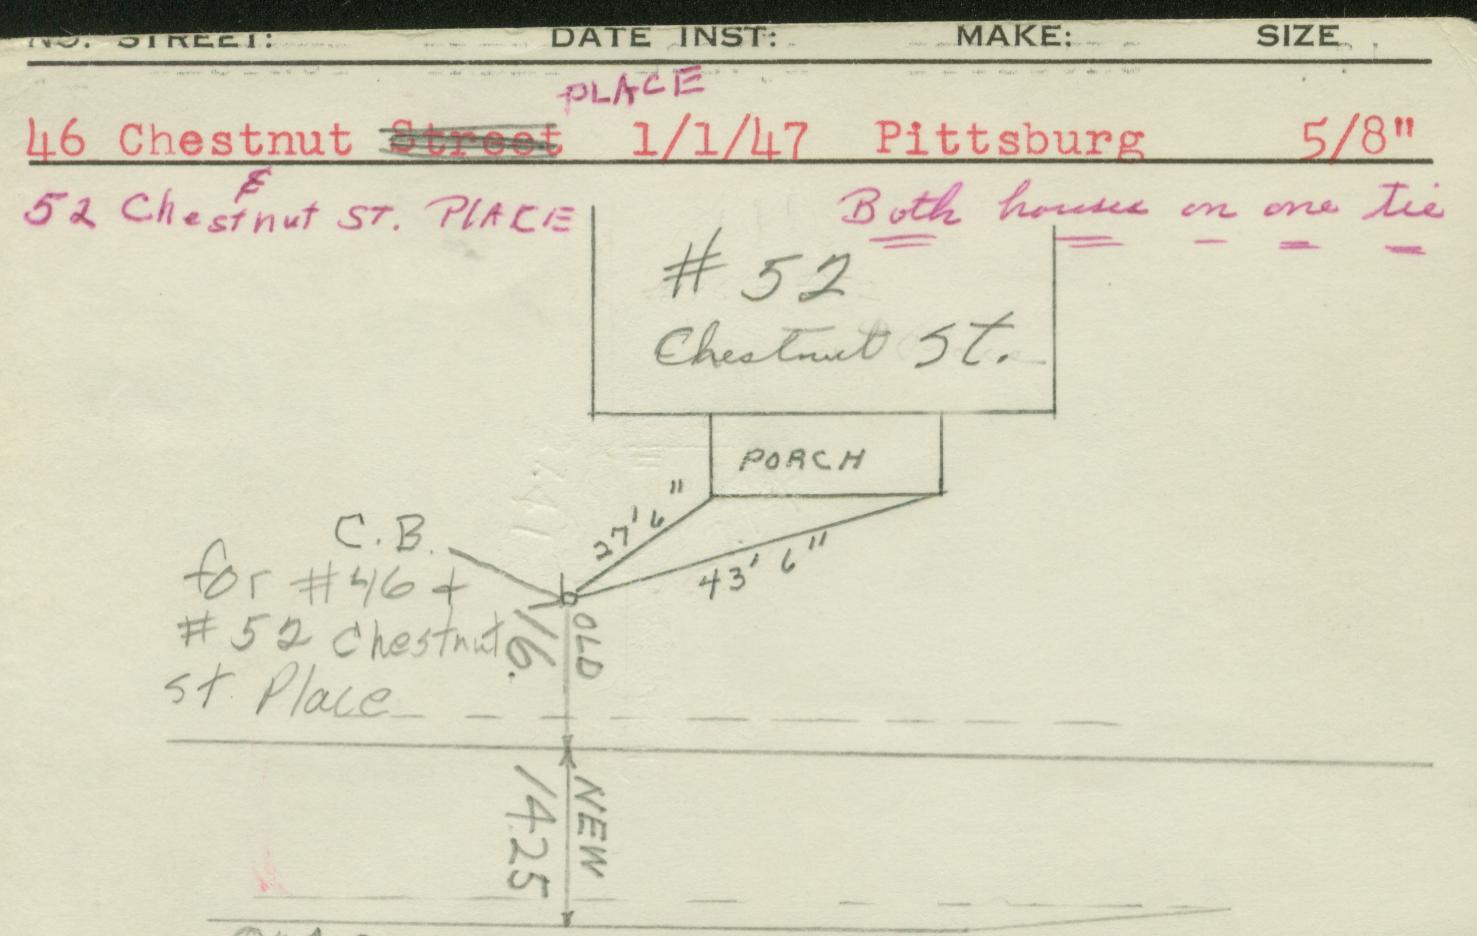 NO. STREET: DATE INST: MAKE: SIZE
PLACE
46 Chestnut Street 1/1/47 Pittsburg 5/8"
&
52 Chestnut ST. PLACE Both houses on one tie
# 52
Chestnut St.
PORCH
27' 6"
43' 6"
C.B.
for #46 +
#52 Chestnut
St. Place
16.
OLD
NEW
14.25